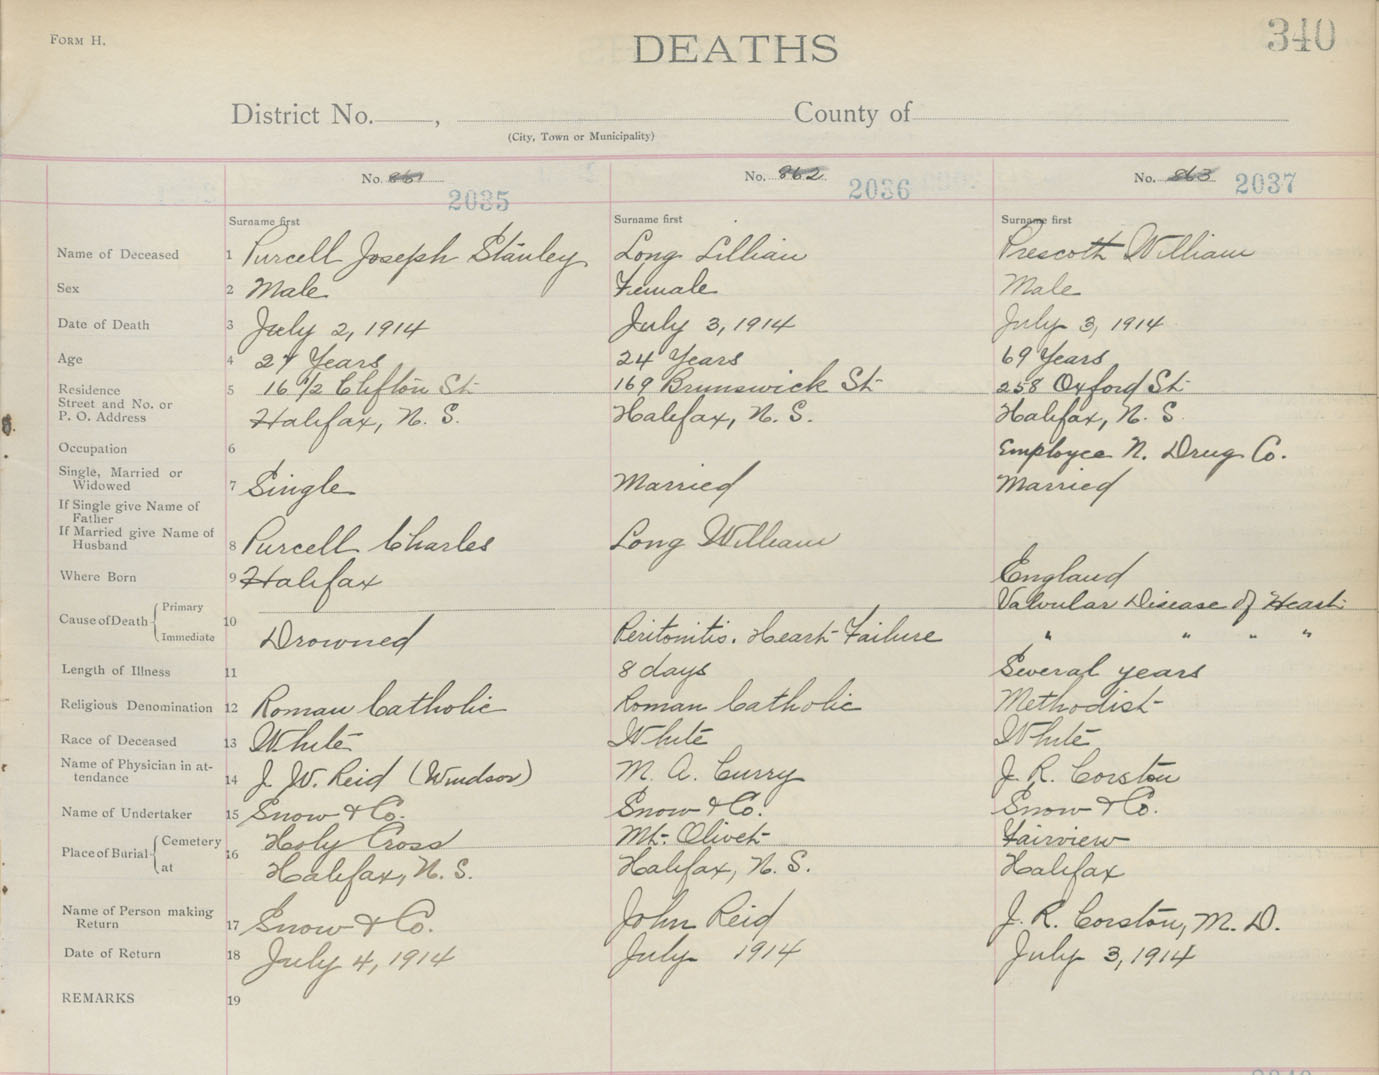 FORM H.
DEATHS
340
District No. , County of
(City, Town or Municipality)
No. No. 862 No. 863
2035 2036 2037
Surname first Surname first Surname first
Name of Deceased 1 Purcell Joseph Stanley Long Lillian Prescott William
Sex 2 Male Female Male
Date of Death 3 July 2, 1914 July 3, 1914 July 3, 1914
Age 4 Years 24 Years 69 Years
Residence 5 16 1/2 Clifton St 169 Brunswick St 258 Oxford St
Street and No. or
P. O. Address Halifax, N. S. Halifax, N. S. Halifax, N. S
Occupation 6 Employee N. Drug Co.
Single, Married or
Widowed 7 Single Married Married
If Single give Name of
Father
If Married give Name of
Husband 8 Purcell Charles Long William
Where Born 9 Halifax England
Cause of Death Primary Valvular Disease of Heart
10
Immediate Drowned Peritonitis. Heart Failure " " " "
Length of Illness 11 8 days Several years
Religious Denomination 12 Roman Catholic Roman Catholic Methodist
Race of Deceased 13 White White White
Name of Physician in at-
tendance 14 J. W. Reid (Windsor) M. A. Curry J. R. Corston
Name of Undertaker 15 Snow & Co. Snow & Co. Snow & Co.
Place of Burial Cemetery Holy Cross Mt. Olivet Fairview
16
at Halifax, N. S. Halifax, N. S. Halifax
Name of Person making
Return 17 Snow & Co. John Reid J. R. Corston, M. D.
Date of Return 18 July 4, 1914 July 1914 July 3, 1914
REMARKS 19